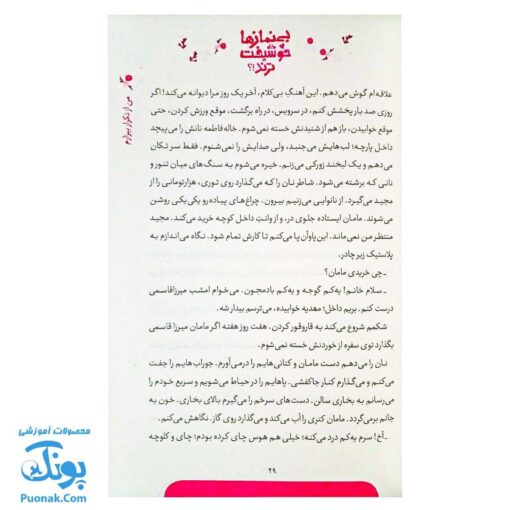 بی‌نمازها
خوشبخت
ترند؟!
من از تکرار بیزارم
علاقه‌ام گوش می‌دهم. این آهنگِ بی‌کلام، آخر یک روز مرا دیوانه می‌کند! اگر
روزی صد بار پخشش کنم، در سرویس، در راه برگشت، موقع ورزش کردن، حتی
موقع خوابیدن، باز هم از شنیدنش خسته نمی‌شوم. خاله فاطمه نانش را می‌پیچد
داخل پارچه؛ لب‌هایش می‌جنبد، ولی صدایش را نمی‌شنوم. فقط سر تکان
می‌دهم و یک لبخند زورکی می‌زنم. خیره می‌شوم به سنگ‌های میان تنور و
نانی که برشته می‌شود. شاطر نان را که می‌گذارد روی توری، هزارتومانی را از
مجید می‌گیرد. از نانوایی می‌زنیم بیرون. چراغ‌های پیاده‌رو یکی‌یکی روشن
می‌شوند. مامان ایستاده جلوی در، و از وانتِ داخل کوچه خرید می‌کند. مجید
منتظر من نمی‌ماند. این‌پا‌وآن‌پا می‌کنم تا کارش تمام شود. نگاه می‌اندازم به
پلاستیک زیر چادر.
ـ چی خریدی مامان؟
ـ سلام خانم! یه‌کم گوجه و یه‌کم بادمجون. می‌خوام امشب میرزاقاسمی
درست کنم. بریم داخل؛ مهدیه خوابیده، می‌ترسم بیدار شه.
شکمم شروع می‌کند به قاروقور کردن. هفت روز هفته اگر مامان میرزا قاسمی
بگذارد توی سفره از خوردنش خسته نمی‌شوم.
نان را می‌دهم دست مامان و کتانی‌هایم را درمی‌آورم. جوراب‌هایم را جفت
می‌کنم و می‌گذارم کنار جاکفشی. پاهایم را در حیاط می‌شویم و سریع خودم را
می‌رسانم به بخاری سالن. دست‌های سرخم را می‌گیرم بالای بخاری. خون به
جانم برمی‌گردد. مامان کتری را آب می‌کند و می‌گذارد روی گاز. نگاهش می‌کنم.
ـ آخ! سرم یه‌کم درد می‌کنه؛ خیلی هم هوس چای کرده بودم؛ چای و کلوچه
۲۹
محصولات آموزشی
پونک
Puonak.Com